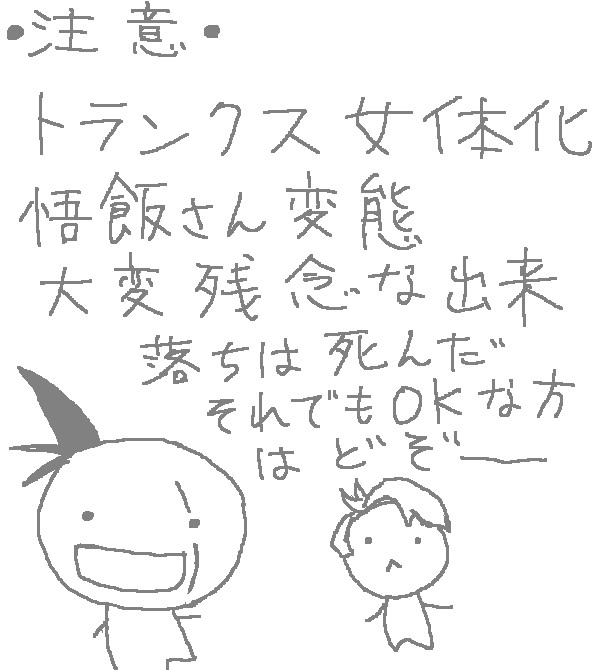 ・注意・
トランクス女体化
悟飯さん変態
大変残念な出来
落ちは死んだ
それでもOKな方
はどぞー